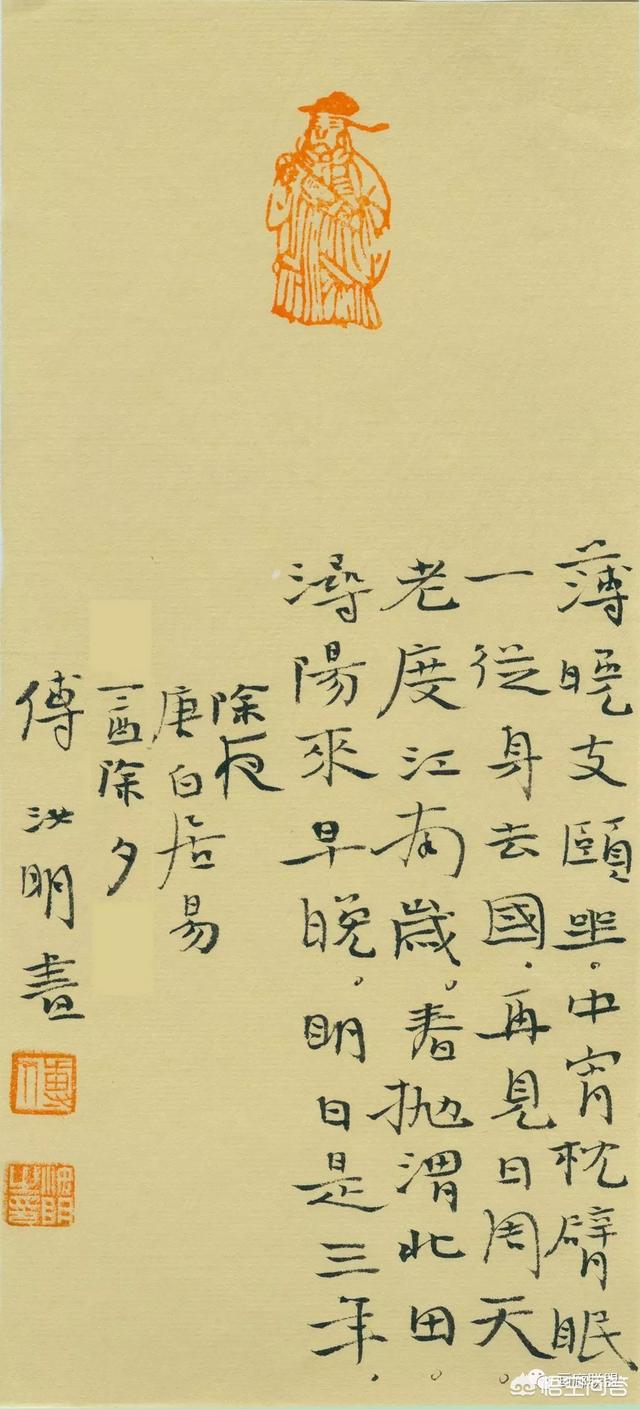 薄晚支頤坐。中宵枕臂眠。
一從身去國．再見日周天。
老度江南歲。春拋渭北田．
潯陽來早晚。明日是三年．
除夜
唐白居易
酉除夕
傅明書
悟空问答